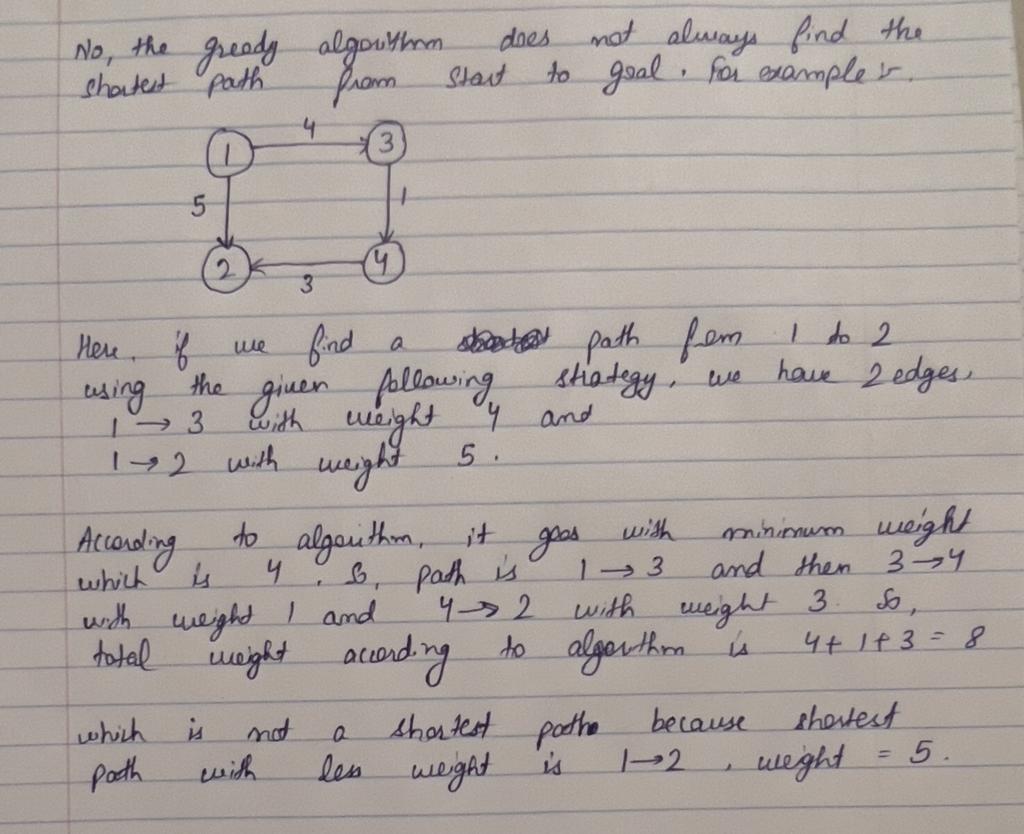 No, the gready algorithm does not always find the
shortest path from start to goal. For example :-
4
1
3
5
1
2
4
3
Here, if we find a path from 1 to 2
using the given following strategy, we have 2 edges,
1 → 3 with weight 4 and
1 → 2 with weight 5.
According to algorithm, it goes with minimum weight
which is 4. So, path is 1 → 3 and then 3 → 4
with weight 1 and 4 → 2 with weight 3. So,
total weight according to algorithm is 4 + 1 + 3 = 8
which is not a shortest path because shortest
path with less weight is 1 → 2, weight = 5.